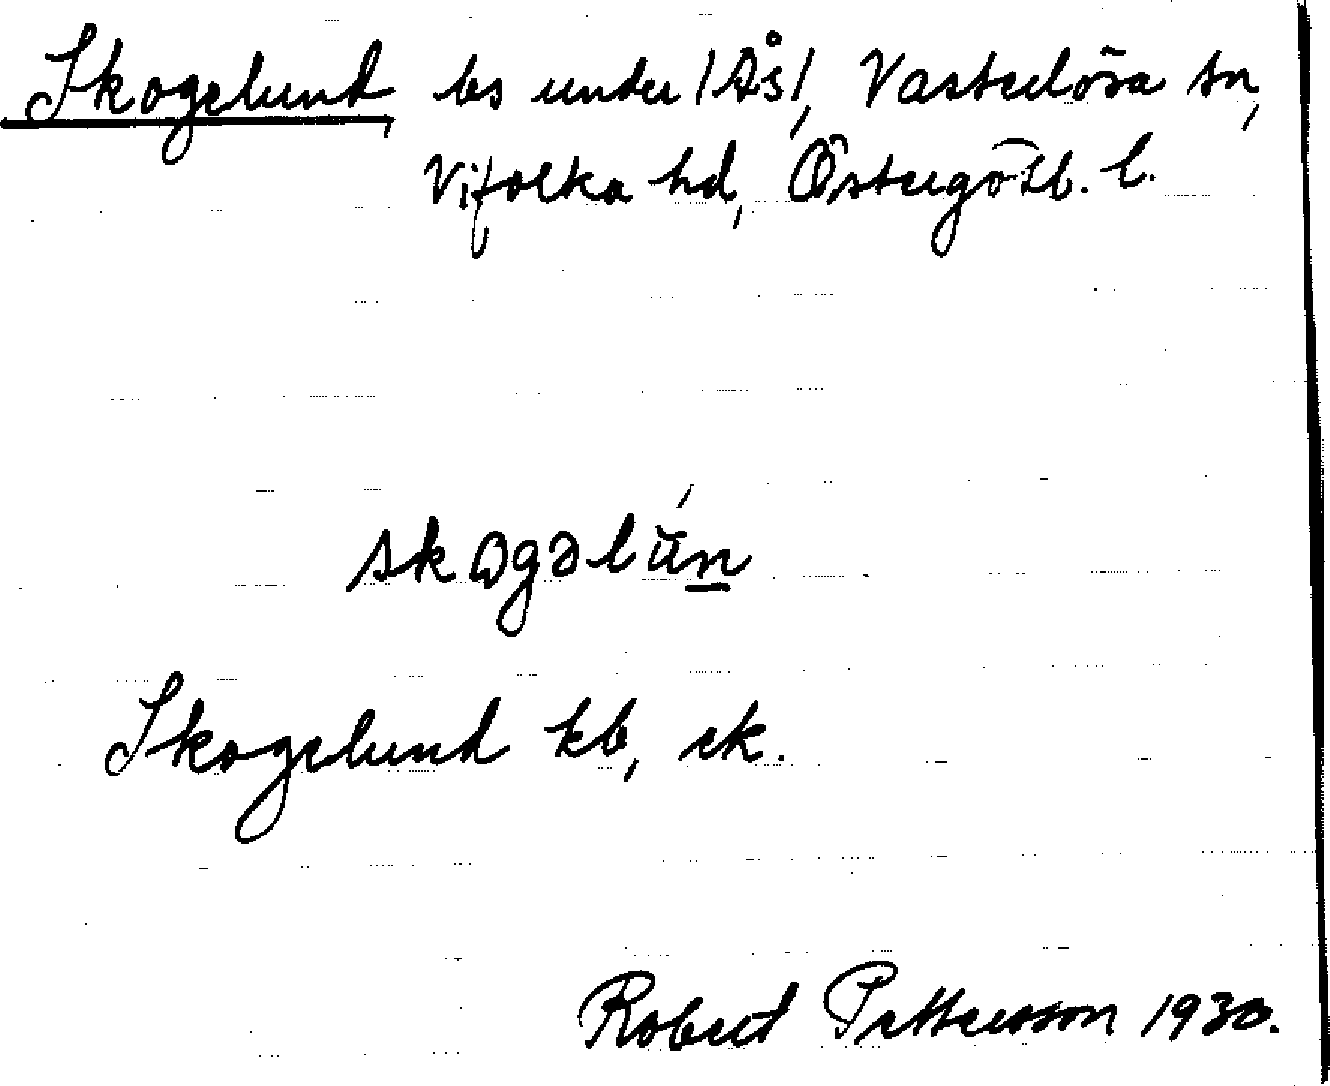 Skogslund, ls under /Ås/, Västerlösa sn,
Vifolka hd, Östergötl. l.
skogəlún
Skogslund kb, ek.
Robert Pettersson 1930.